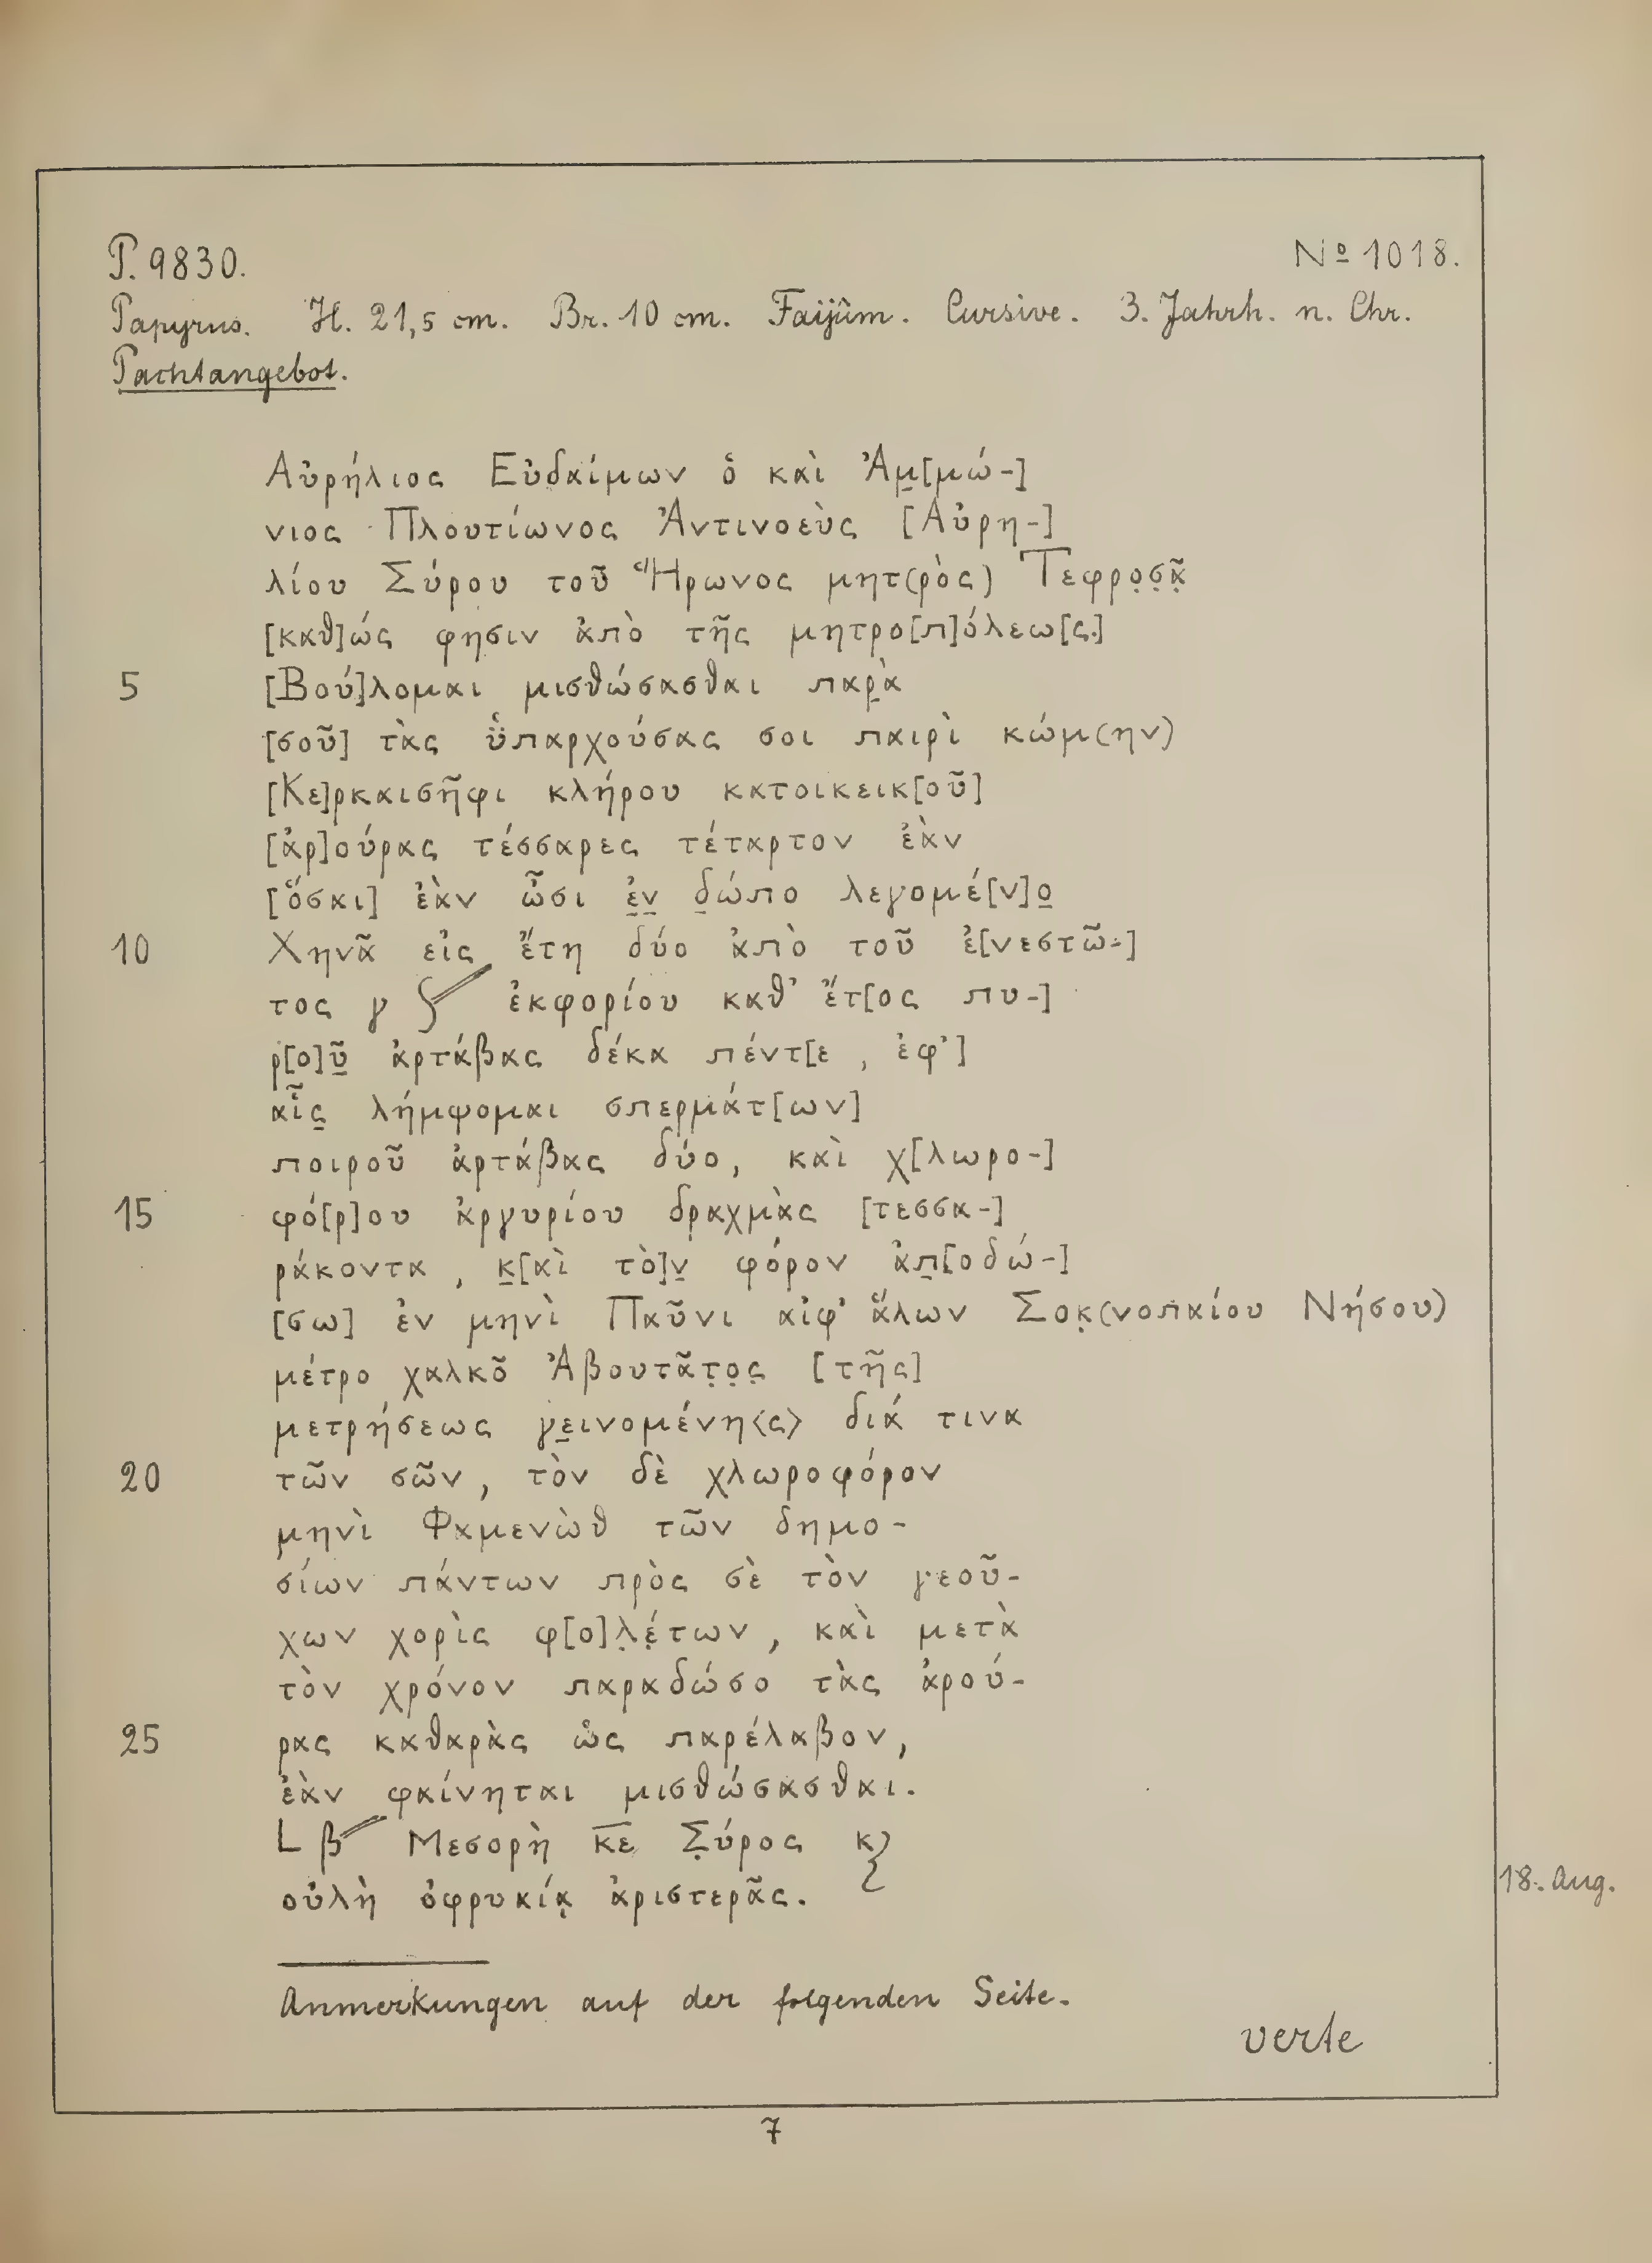 P. 9830. No 1018.
Papyrus. H. 21,5 cm. Br. 10 cm. Faijûm. Cursive. 3. Jahrh. n. Chr.
Pachtangebot.
Αὐρήλιος Εὐδαίμων ὁ καὶ Ἀμ̣[μώ-]
νιος Πλουτίωνος Ἀντινοεὺς [Αὐρη-]
λίου Σύρου τοῦ Ἥρωνος μητ(ρὸς) Τεφρο̣σ̣ᾶ̣
[καθ]ώς φησιν ἀπὸ τῆς μητρο[π]όλεω[ς.]
5 [Βού]λομαι μισθώσασθαι παρ̣ὰ
[σοῦ] τὰς ὑ̈παρχούσας σοι παιρὶ κώμ(ην)
[Κε]ρκαισῆφι κλήρου κατοικεικ[οῦ]
[ἀρ]ούρας τέσσαρες τέταρτον ἐὰν
[ὅσαι] ἐὰν ὦσι ἐ̣ν̣ δ̣ώπο λεγομέ[ν]ο̣
10 Χηνᾶ εἰς ἔτη δύο ἀπὸ τοῦ ἐ[νεστῶ-]
τος γ ∫// ἐκφορίου καθ’ ἔτ[ος πυ-]
ρ[ο]ῦ̣ ἀρτάβας δέκα πέντ[ε, ἐφ’]
αἷς̣ λήμψομαι σπερμάτ[ων]
ποιροῦ ἀρτάβας δύο, καὶ χ[λωρο-]
15 φό[ρ]ου ἀργυρίου δραχμὰς [τεσσα-]
ράκοντα, κ̣[αὶ τὸ]ν̣ φόρον ἀπ̣[οδώ-]
[σω] ἐν μηνὶ Παῦνι αἰφ’ ἅλων Σοκ̣(νοπαίου Νήσου)
μέτρο χαλκο͂ Ἀβουτᾶτ̣ο̣ς̣ [τῆς]
μετρήσεως γε̣ινομένη⟨ς⟩ διά τινα
20 τῶν σῶν, τὸν δὲ χλωροφόρον
μηνὶ Φαμενὼθ τῶν δημο-
σίων πάντων πρὸς σὲ τὸν γεοῦ-
χων χορὶς φ[ο]λ̣έ̣των, καὶ μετὰ
τὸν χρόνον παραδώσο τὰς ἀρού-
25 ρας καθαρὰς ὡς παρέλαβον,
ἐὰν φαίνηται μισθώσασθαι.
L β// Μεσορὴ κ̅ε̅ Σ̣ύρος κ⟆
οὐλὴ ὀφρυαίᾳ̣ ἀριστερᾶς.
18. Aug.
Anmerkungen auf der folgenden Seite.
verte
7